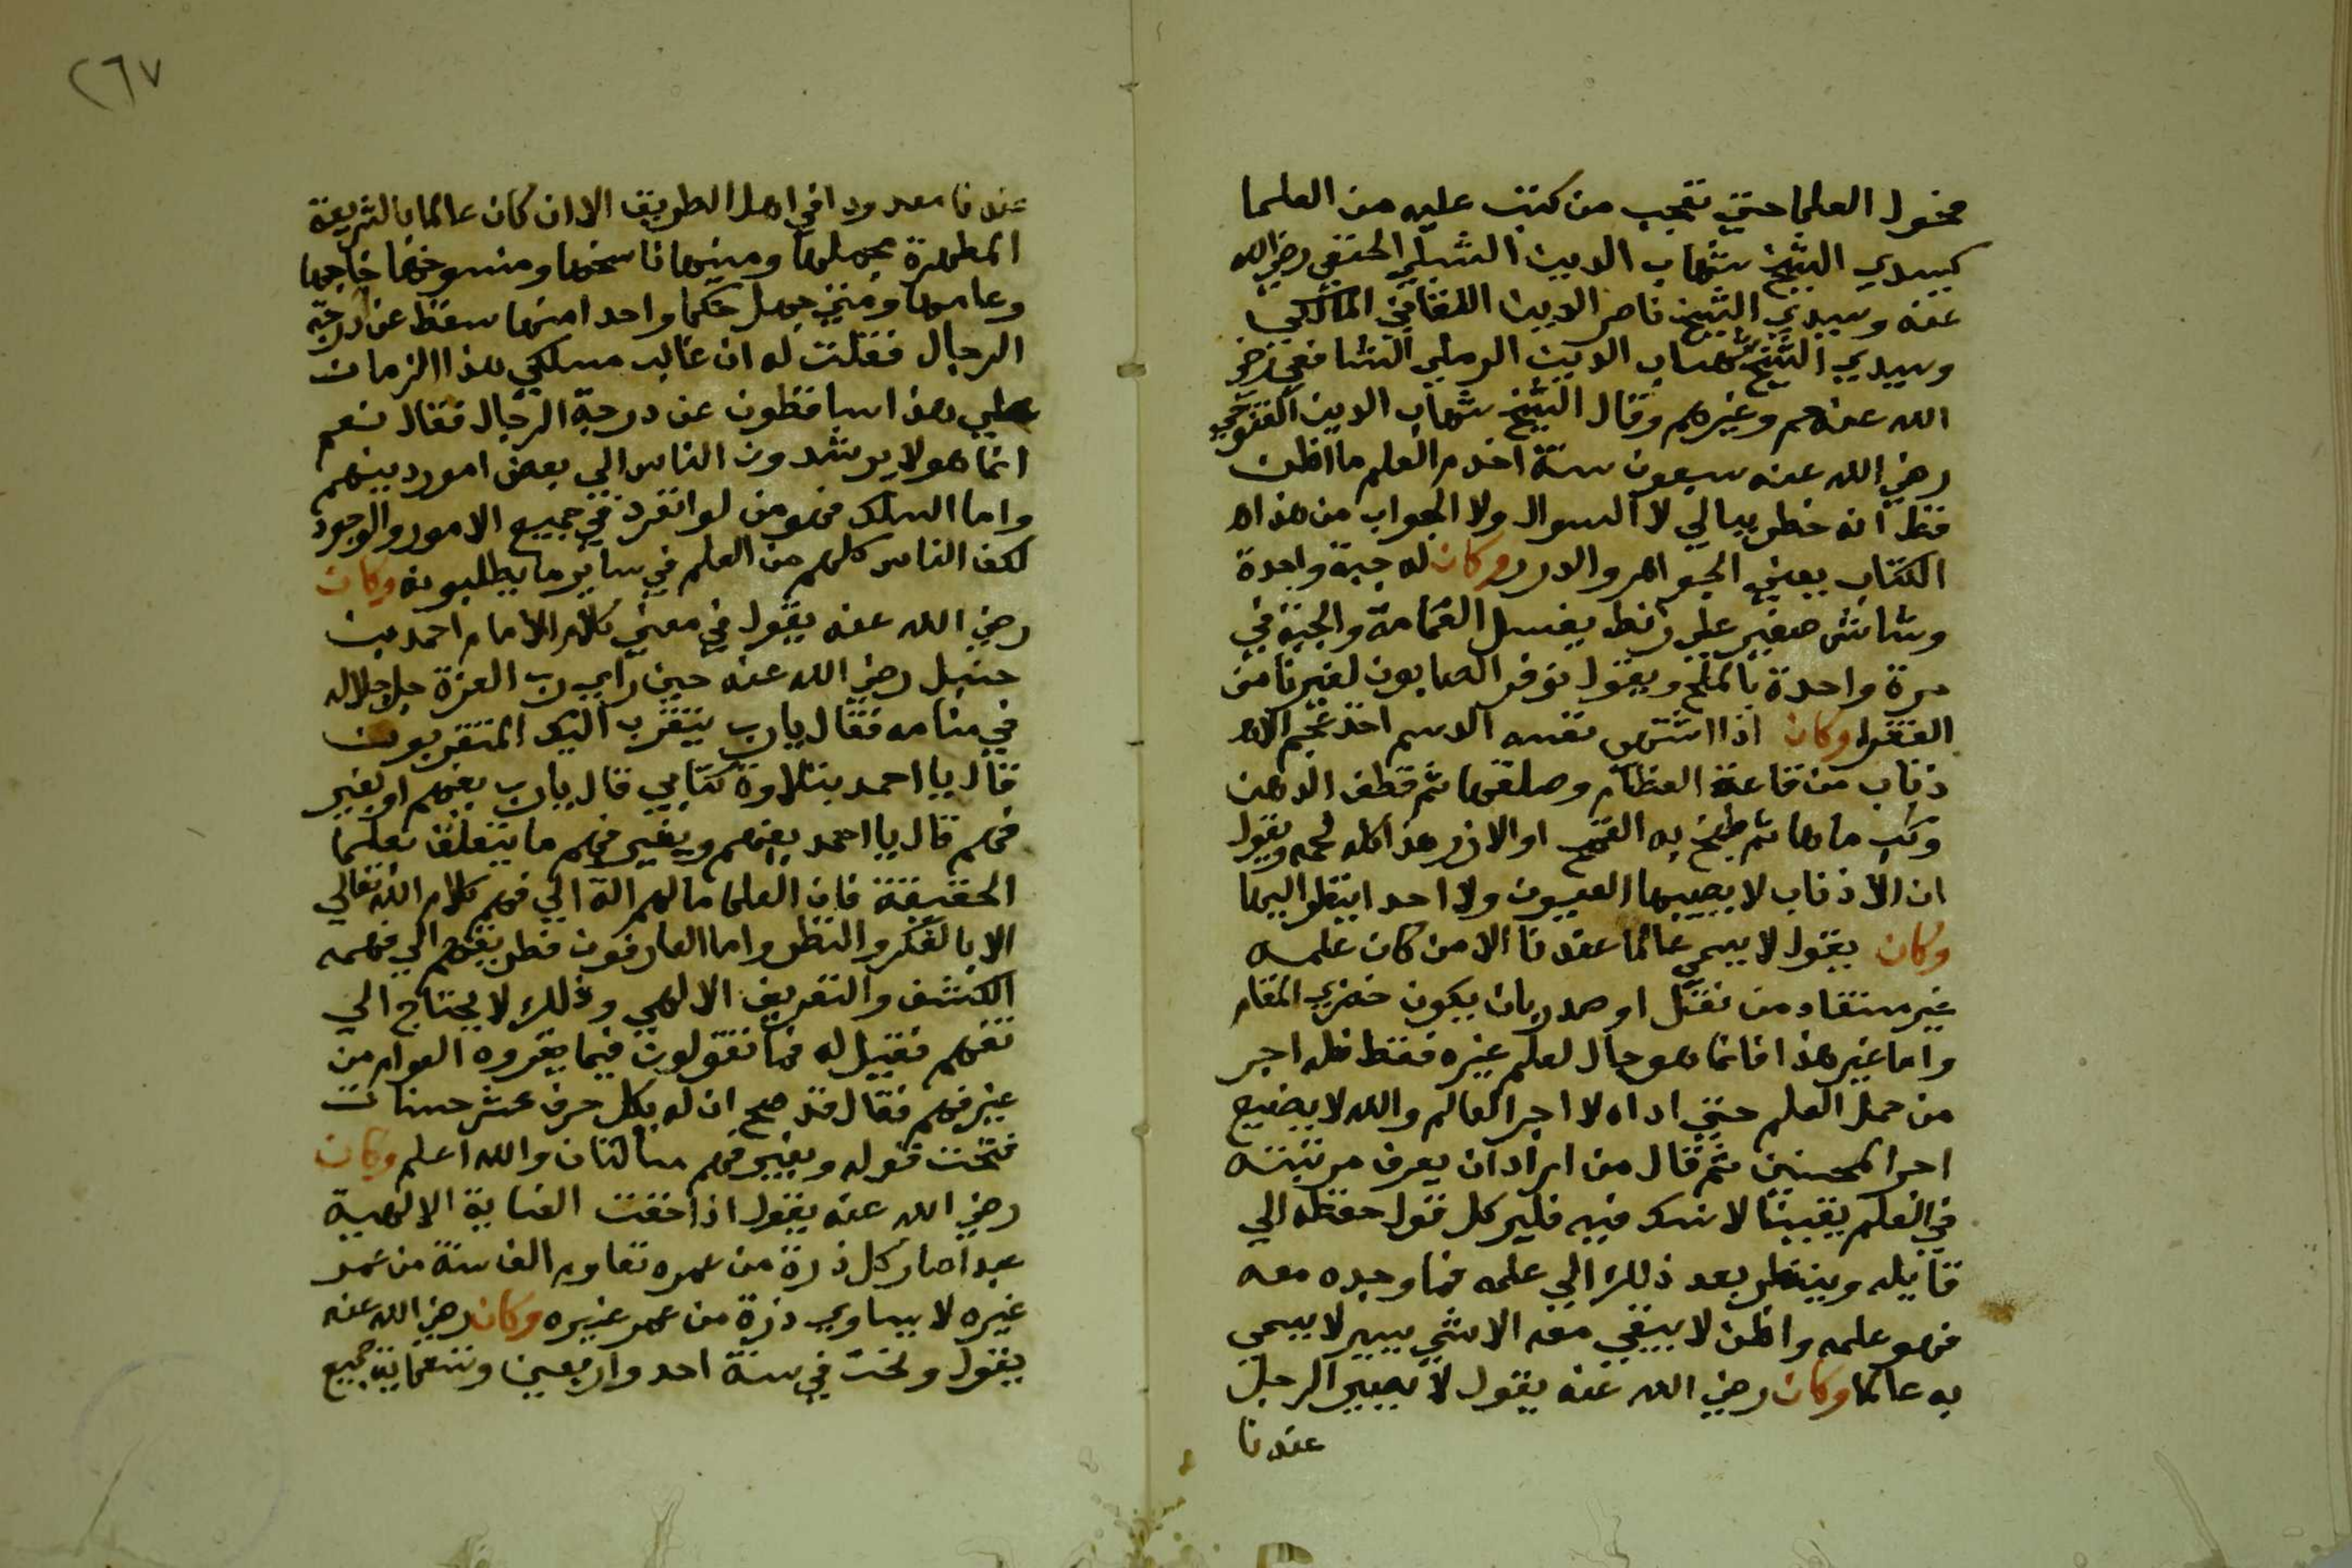 فحول العلما حتي تعجب من كتب عليه من العلما
كسيدي الشيخ شهاب الدين الشبلي الحنفي رضي الله
عنه وسيدي الشيخ ناصر الدين اللقاني المالكي
وسيدي الشيخ شهاب الدين الرملي الشافعي رضي
الله عنهم وغيرهم وقال الشيخ شهاب الدين الفتوحي
رضي الله عنه سبعون سنة اخدم العلم ما اظن
قط انه خطر ببالي لا السوال ولا الجواب من هذا
الكتاب يعني الجواهر والدرر وكان له جبة واحدة
وشاش صغير علي زنط يغسل العمامة والجبة في
مرة واحدة بالملح ويقول نوفر الصابون لغيرنا من
الفقرا وكان اذا اشتهي نفسه الدسم اخذ
ذناب من قاعة العظام وصلقها ثم قطف الدهن
وكب ماها ثم طبخ به القمح او الارز هذا كله لحمه ويقول
ان الاذناب لا يصيبها العيون ولا احد اينظر اليها
وكان يقول لا يسمي عالما عندنا الا من كان علمه
غير مستفاد من نقل او صدر بان يكون خضري المقام
واما غير هذا فانما هو حال لعلم غيره فقط فله اجر
من حمل العلم حتي اداه لا اجر العالم والله لا يضيع
اجر المحسنين ثم قال من اراد ان يعرف مرتبته
في العلم يقينا لا شك فيه فلير كل قول حفظه الي
قايله وينظر بعد ذلك الي علمه فما وجده معه
فهو علمه واظن لا يبقي معه الا شي يسير لا يسمي
به عالما وكان رضي الله عنه يقول لا يصير الرجل
عندنا
٢٦٧
عندنا معدودا في اهل الطريق الا ان كان عالما بالشريعة
المطهرة مجملها ومبينها ناسخها ومنسوخها خاصها
وعامها ومتي جهل حكما واحدا منها سقط عن درجة
الرجال فقلت له ان غالب مسلكي هذا الزمان
علي هذا ساقطون عن درجة الرجال فقال نعم
انما هولا يرشدون الناس الي بعض امور دينهم
واما المسلك فهو من لو انفرد في جميع الامور والوجود
لكف الناس كلهم من العلم في ساير ما يطلبونه وكان
رضي الله عنه يقول في معني كلام الامام احمد بن
حنبل رضي الله عنه حين راي رب العزة جل جلاله
في منامه فقال يا رب بم يتقرب اليك المتقربون
قال يا احمد بتلاوة كتابي قال يا رب بفهم او بغير
فهم قال يا احمد بفهم وبغير فهم ما يتعلق بعلما
الحقيقة فان العلما مالهم الة الي فهم كلام الله تعالي
الا بالفكر والنظر واما العارفون فطريقهم الي فهمه
الكشف والتعريف الالهي وذلك لا يحتاج الي
تفهم فقيل له فما تقولون فيما يقروه العوام من
غير فهم فقال قد صح ان له بكل حرف عشر حسنات
فتحت قوله وبغير فهم مسالتان والله اعلم وكان
رضي الله عنه يقول اذا حفت العناية الالهية
عبدا صار كل ذرة من عمره تقاوم الف سنة من عمر
غيره لا يساوي ذرة من عمر غيره وكان رضي الله عنه
يقول ونحن في سنة احد واربعين وتسعماية جميع